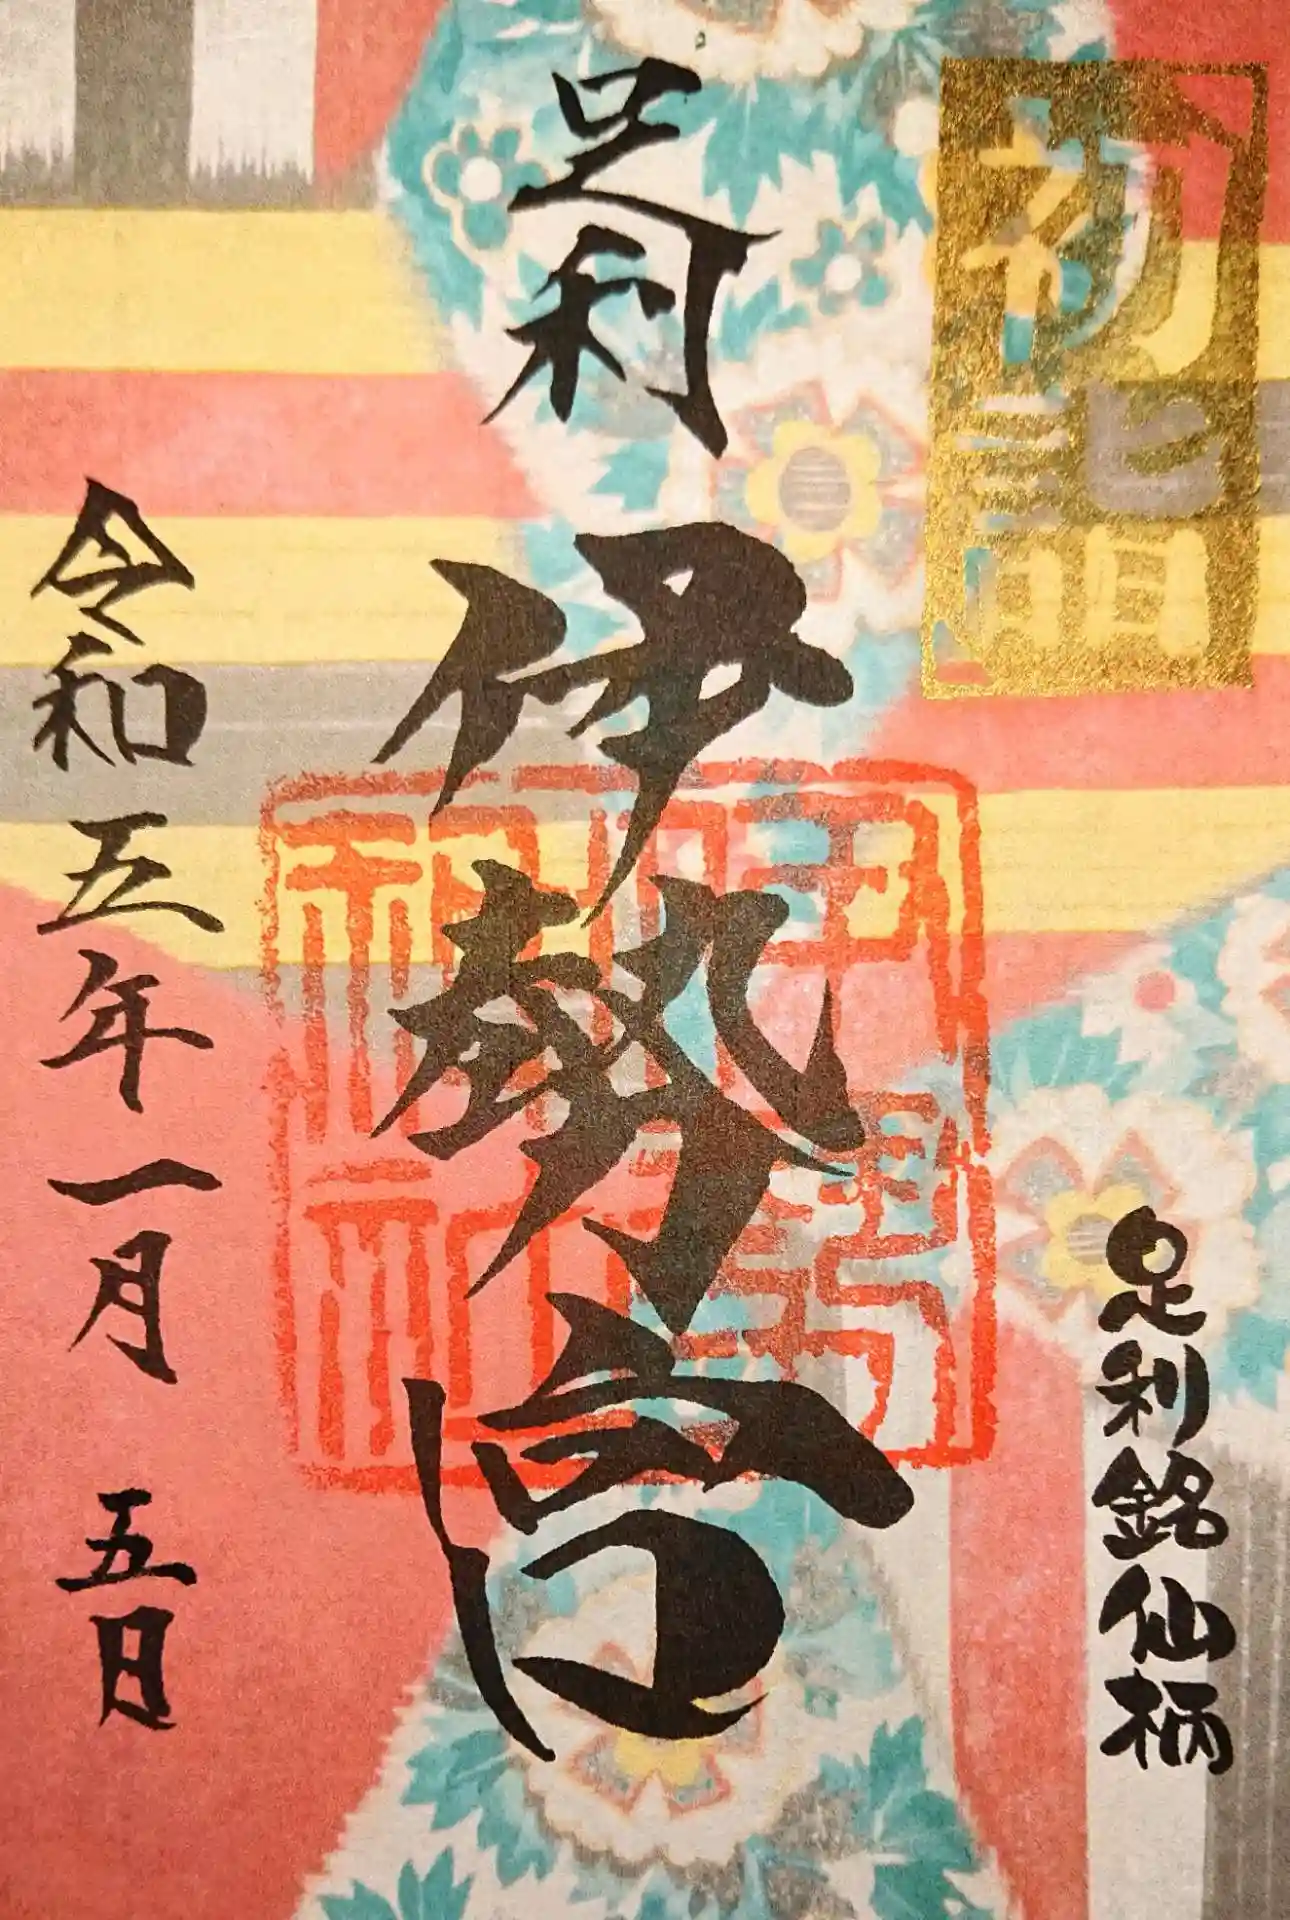 初詣
足利銘仙柄
足利
伊勢宮
伊勢
神社
令和五年一月 五日